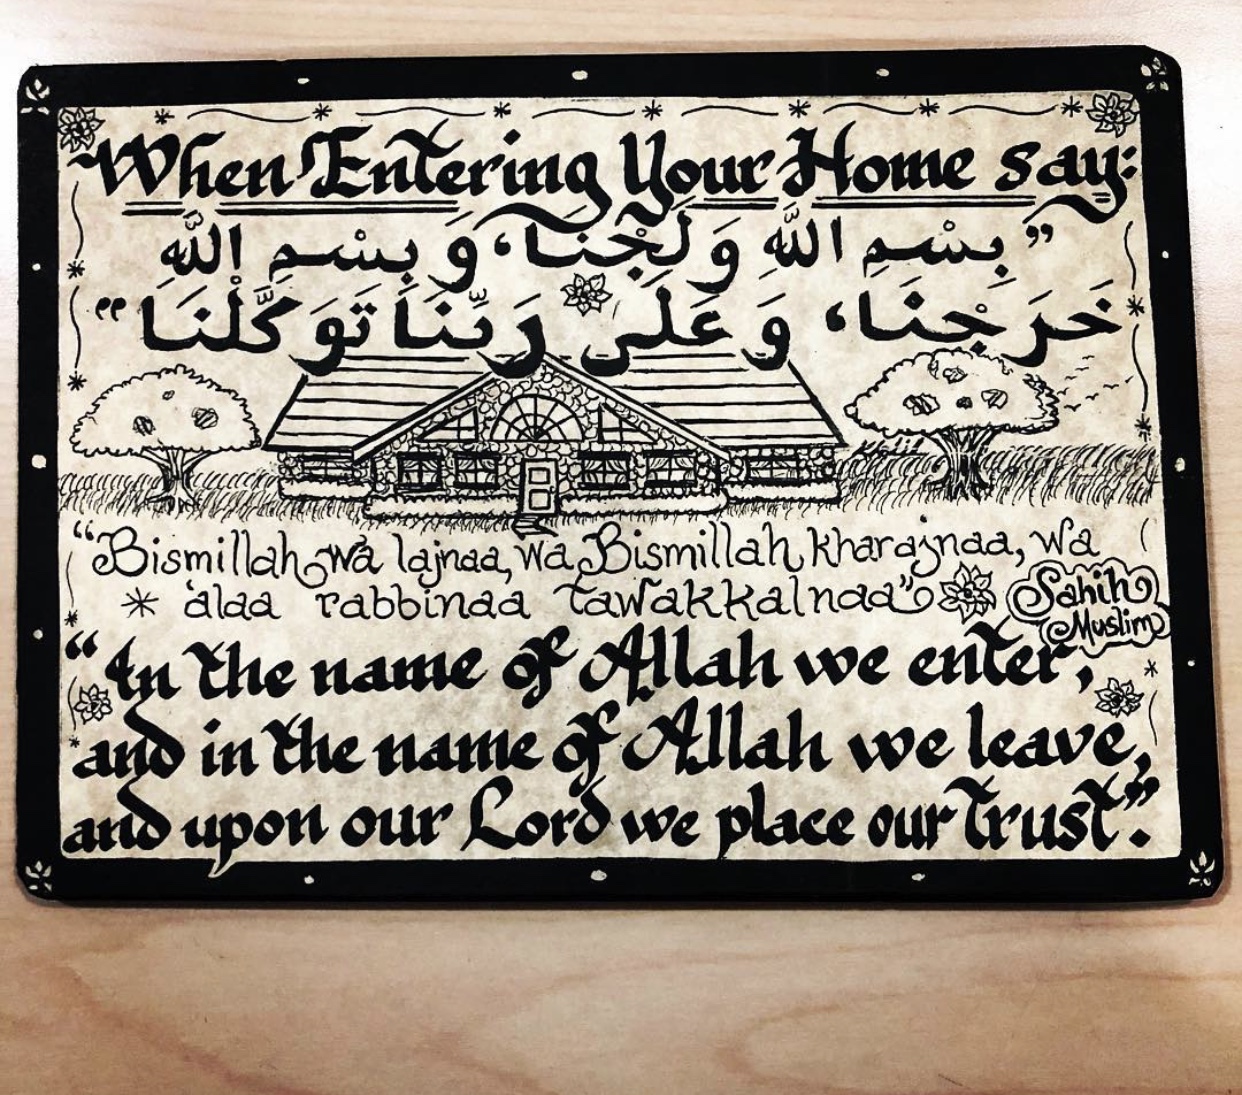 When Entering Your Home say:
"بِسْمِ اللَّهِ وَلَجْنَا، وَ بِسْمِ اللَّهِ
خَرَجْنَا، وَعَلَى رَبِّنَا تَوَكَّلْنَا"
"Bismillah wa lajnaa, wa Bismillah kharajnaa, wa
'alaa rabbinaa tawakkalnaa"
Sahih
Muslim
"In the name of Allah we enter,
and in the name of Allah we leave,
and upon our Lord we place our trust".